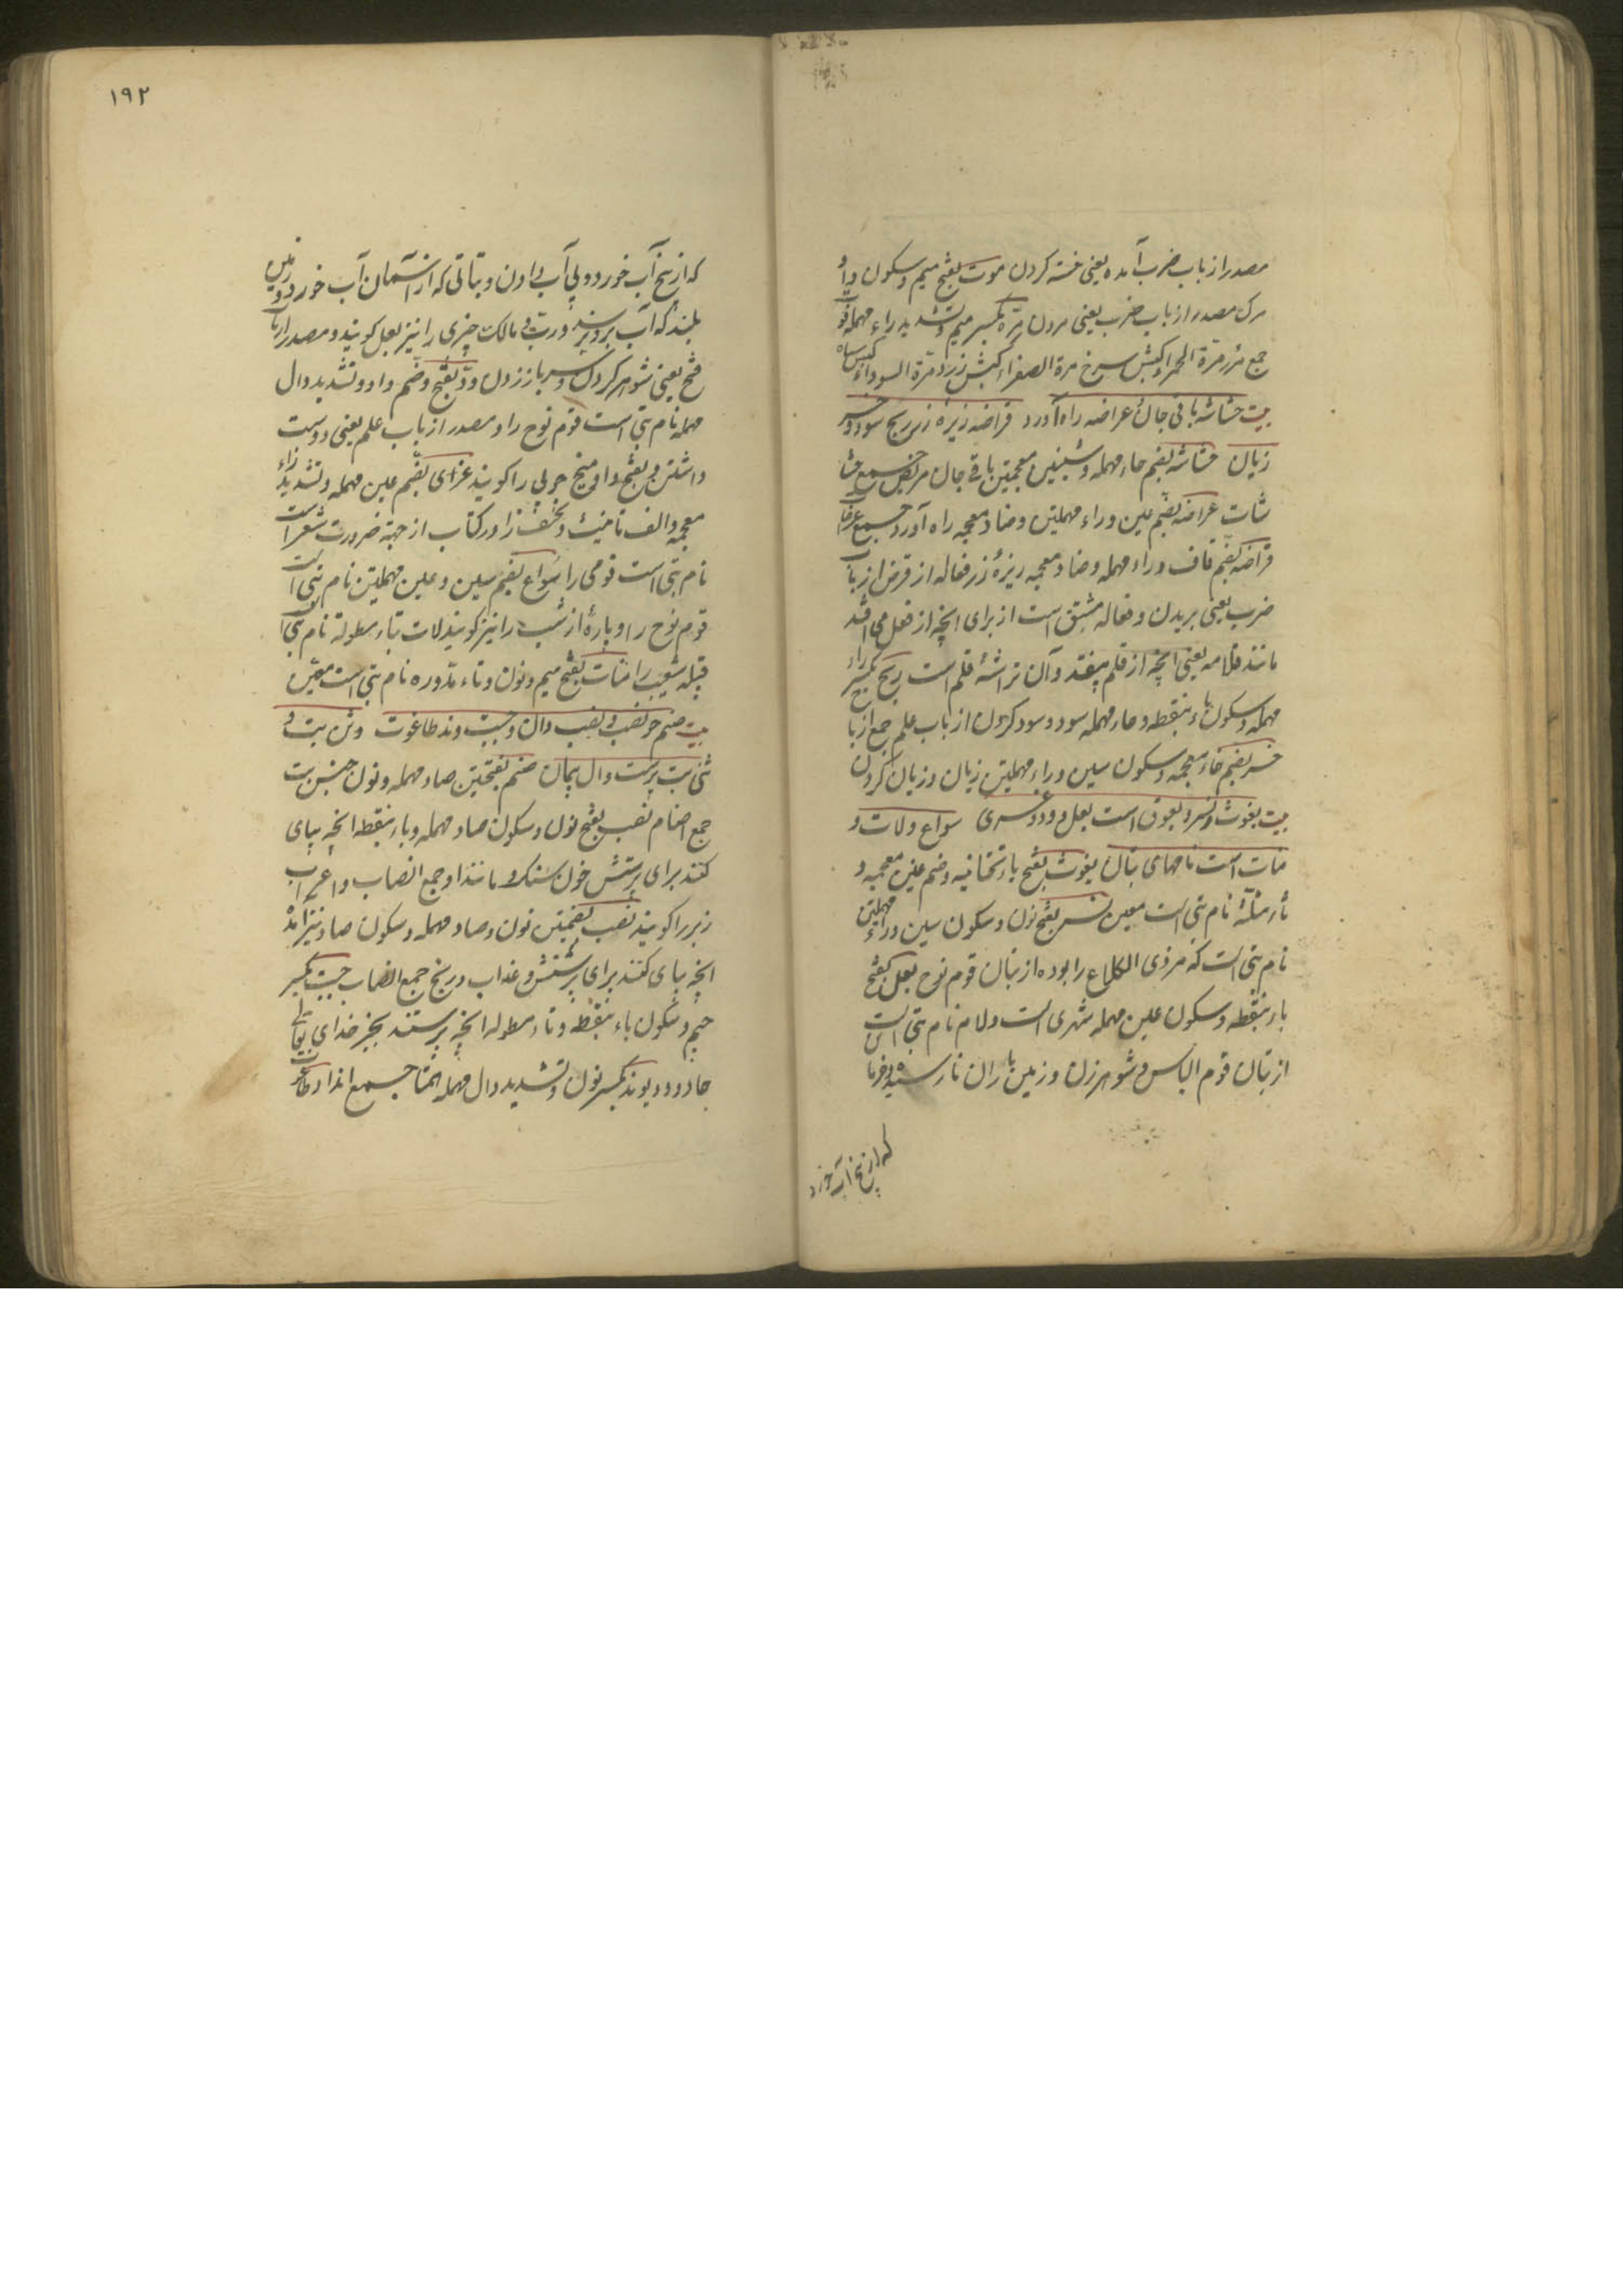 مصدر از باب ضرب آمده یعنی خسته کردن موت بفتح میم و سکون واو
مرک مصدر از باب ضرب یعنی مردن مرّه بکسر میم و تشدید راء مهمله قوّ
جمع مرر مرّة الحمراء کبش سرخ مرة الصفراء کبش زرد مرّة السوداء کبش سیاه
بیت حشاشه باقی جان عراضه راه آورد قراضه ریزه زر ربح سود و خسر
زیان حشاشه بضم حاء مهمله و شینین معجمتین باقی جان مریض جمع حشا
شات عراضه بضم عین و راء مهملتین و ضاد معجمه راه آورد جمع عرضات
قراضه بضم قاف و راء مهمله و ضاد معجمه ریزهٔ زر فعاله از قرض از باب
ضرب یعنی بریدن و فعاله مشتق است از برای انچه از فعل می افتد
مانند قلامه یعنی انچه از قلم بیفتد و آن تراشهٔ قلم است ربح بکسر راء
مهمله و سکون باء بنقطه و حاء مهمله سود و سود کردن از باب علم جمع ارباح
خسر بضم خاء معجمه و سکون سین و راء مهملتین زیان و زیان کردن
بیت یغوث و نسر و یعوق است بعل و ود و عزی سواع و لات و
منات است نامهای بتان یغوث بفتح یاء تحتانیه و ضم غین معجمه و
ثاء مثلثه نام بتی است معین نسر بفتح نون و سکون سین و راء مهملتین
نام بتی است که مر ذی الکلاع را بوده از بتان قوم نوح بعل بفتح
باء بنقطه و سکون عین مهمله شهری است و لام نام بتی است
از بتان قوم الیاس و شوهر زن و زمین باران نارسیده و خرما
که از بیخ آب خورد
۱۹۲
که از بیخ آب خورد و بی آب دادن و نباتی که از آسمان آب خورد و زمین
بلند که آب برو نرسد و ربّ و مالک چیزی را نیز بعل کویند و مصدر از باب
فتح یعنی شوهر کردن و سر باز زدن ودّ بفتح و ضم واو و تشدید دال
مهمله نام بتی است قوم نوح را و مصدر از باب علم یعنی دوست
داشتن و بفتح واو میخ چوبی را کویند عزّای بضم عین مهمله و تشدید زاء
معجمه و الف تانیث و تخفیف زا در کتاب از جهة ضرورت شعر است
نام بتی است قومی را سواع بضم سین و عین مهملتین نام بتی است
قوم نوح را و پارهٔ از شب را نیز کویند لات بتاء مطوله نام بتی
قبیله شعیب را منات بفتح میم و نون و تاء مدوره نام بتی است معین
بیت صنم چو نصب و نصب دان و جبت و ند طاغوت وثن بت و
ثنی بت پرست دان پمان صنم بفتحتین صاد مهمله و نون جنس بت
جمع اصنام نصب بفتح نون و سکون صاد مهمله و باء بنقطه انچه بپای
کنند برای پرستش چون سنک و مانند او جمع انصاب و اعراب
زبر را کویند نصب بضمتین نون و صاد مهمله و سکون صاد نیز آمده
انچه بپای کنند برای پرستش و عذاب و رنج جمع انصاب جبت بکسر
جیم و سکون باء بنقطه و تاء مطوله انچه پرستند بجز خدای تعالی
جادو و دیو ند بکسر نون و تشدید دال مهمله همتا جمع انداد طاغوت